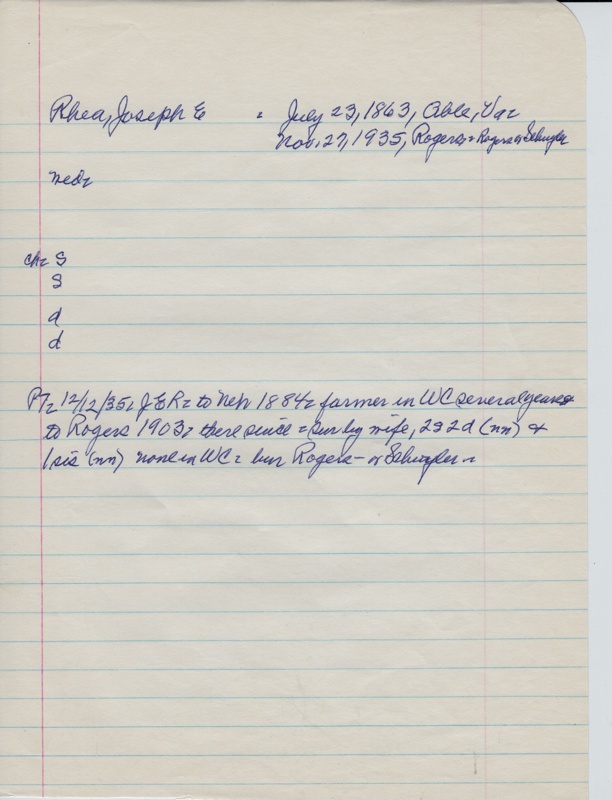 Rhea, Joseph E = July 23, 1863, Able, Va =
Nov. 27, 1935, Rogers = Rogers or Schuyler
med =
ch = S
S
d
d
PT = 12/12/35 = JER = to Neb 1884 = farmer in WC several years
to Rogers 1903 = there since = sur by wife, 2s 2d (nn) &
1 sis (nn) none in WC = bur Rogers - or Schuyler =